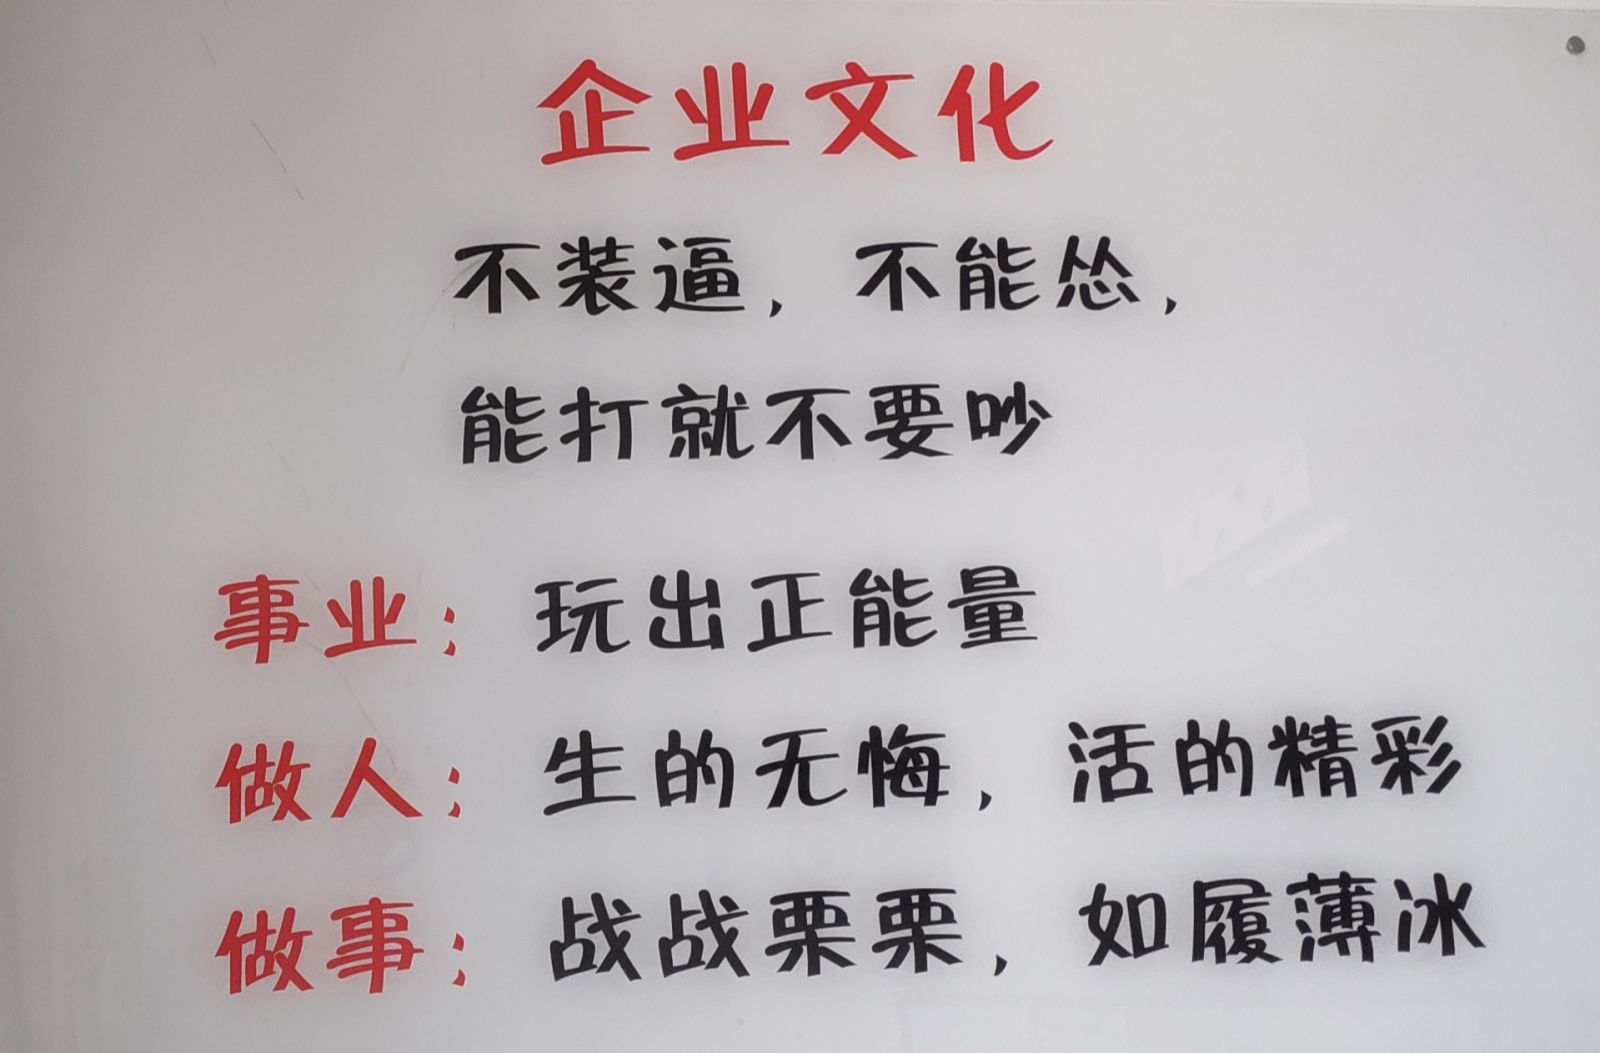 企业文化
不装逼，不能怂，
能打就不要吵
事业：玩出正能量
做人：生的无悔，活的精彩
做事：战战栗栗，如履薄冰